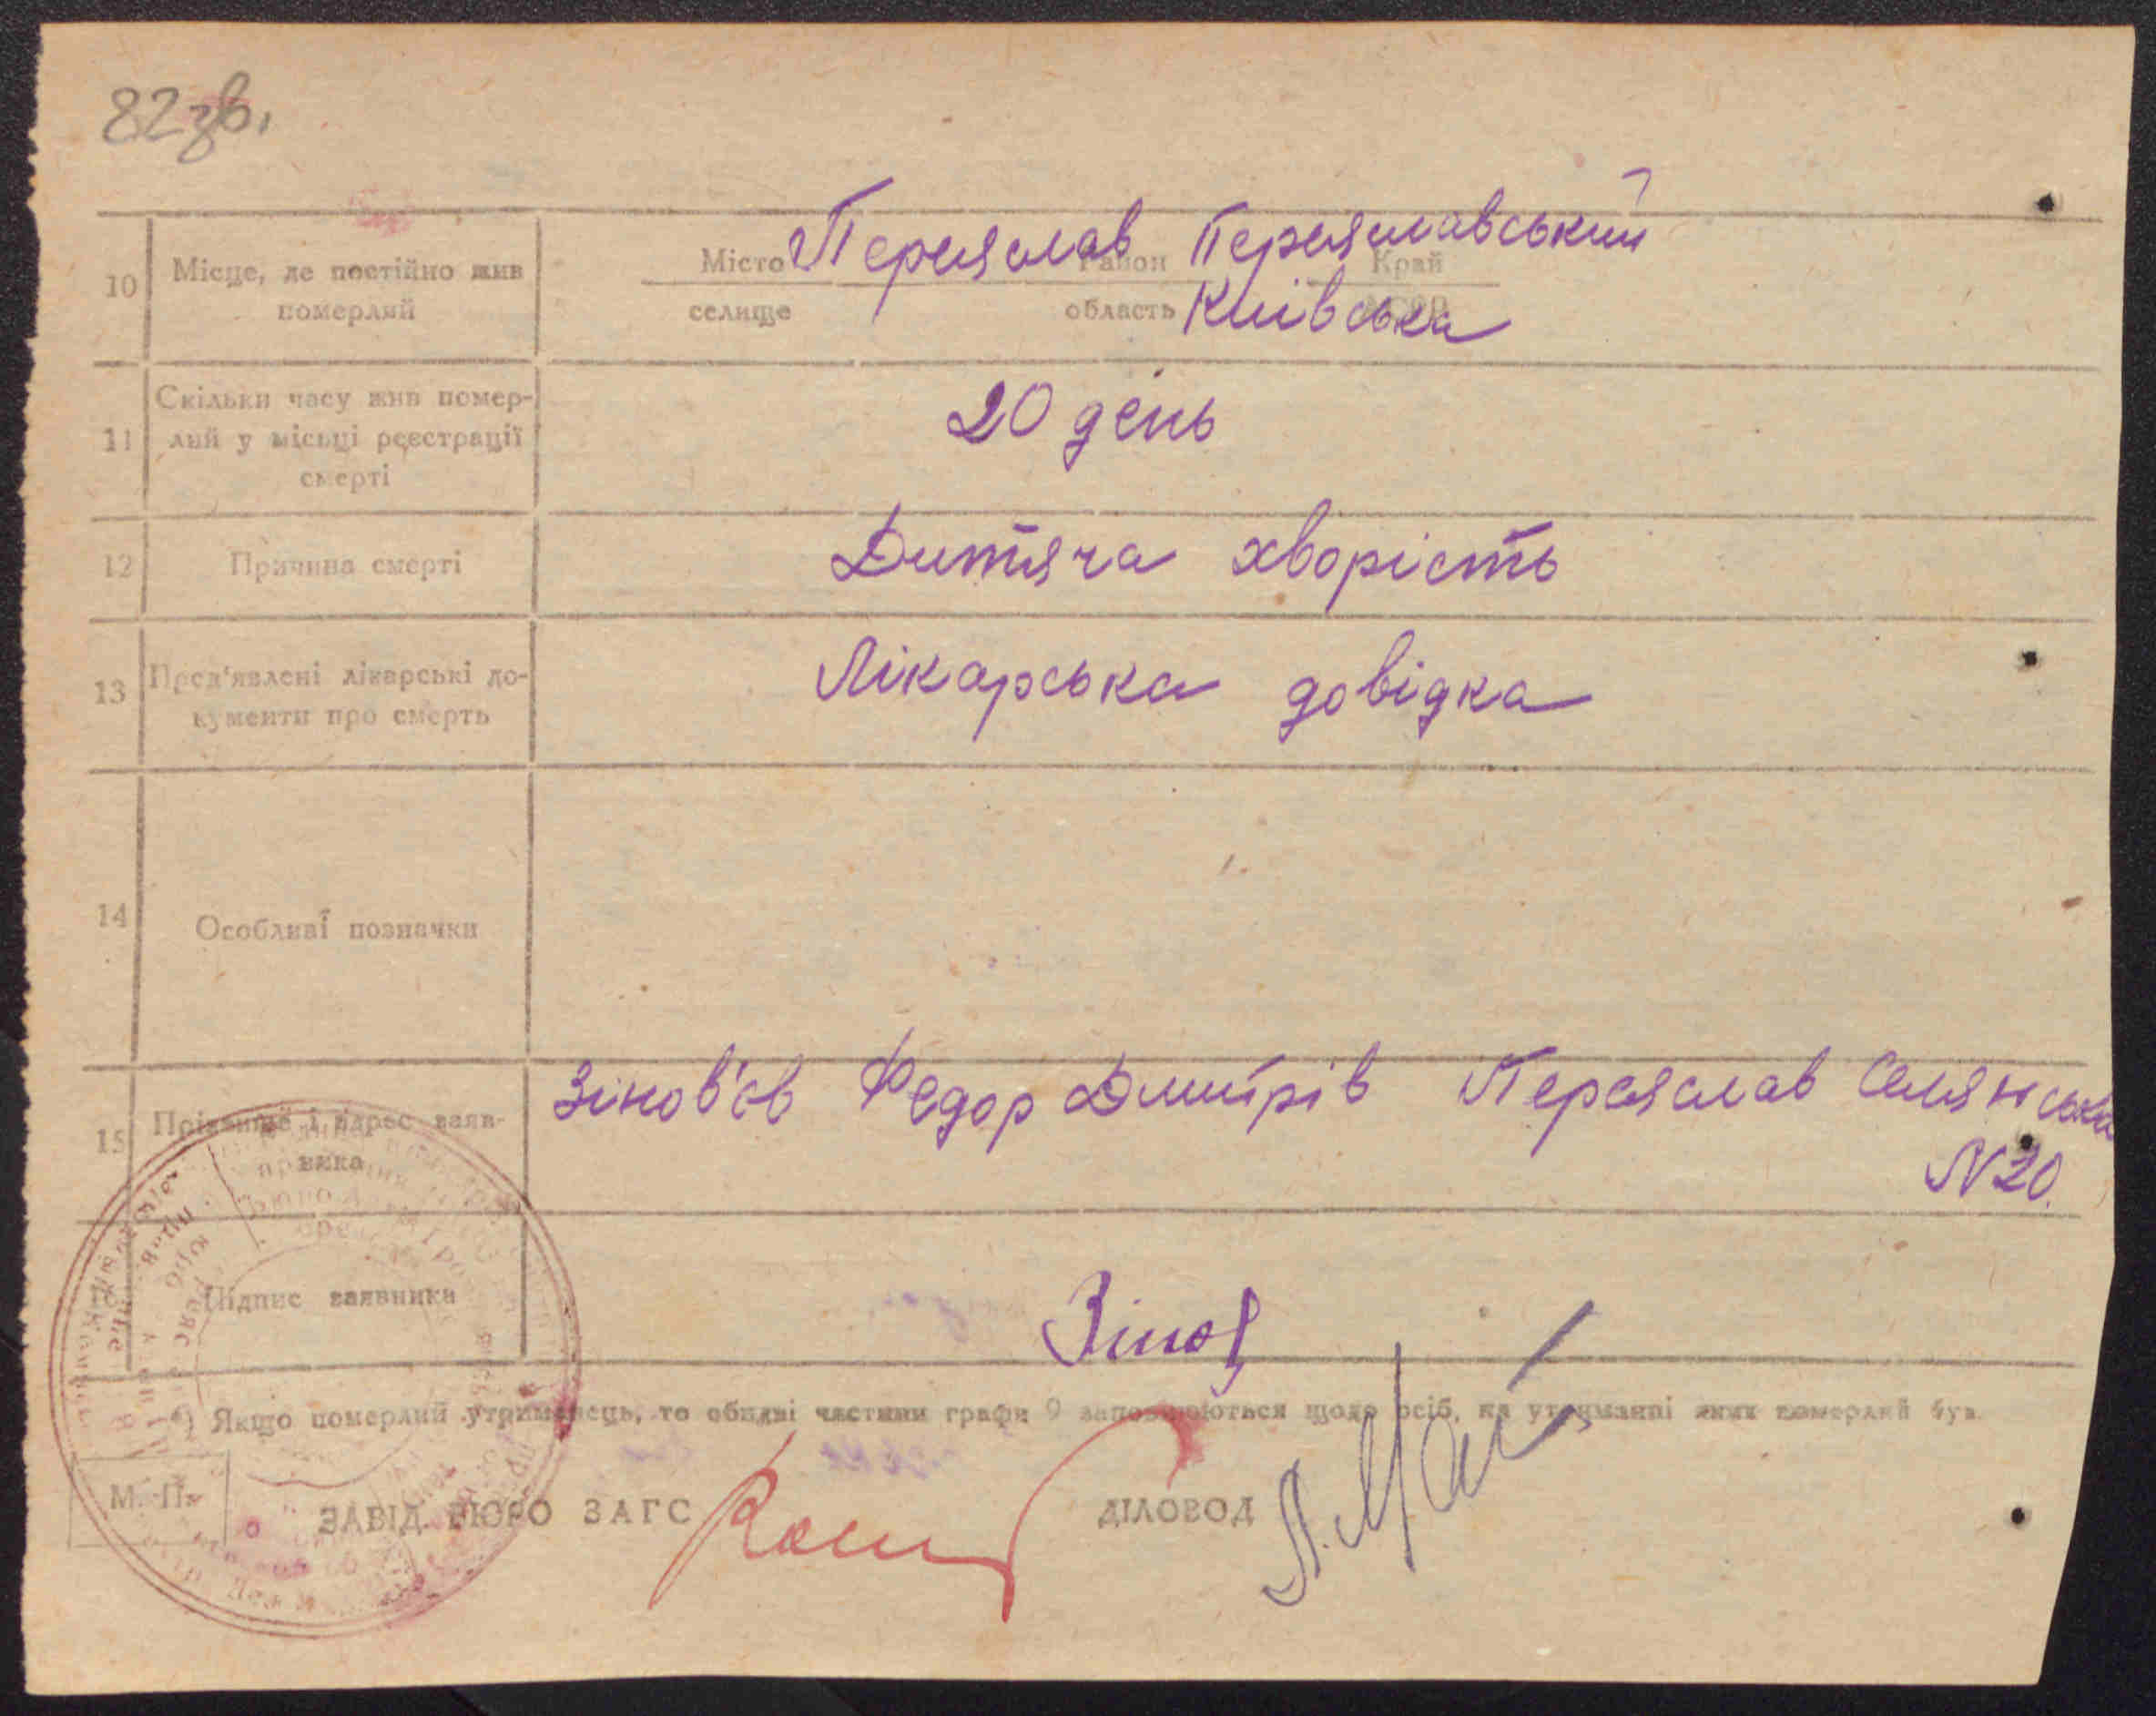 82зв.
10 Місце, де постійно жив померлий
Місто Переяслав Район Переяславський Край
селище область Київська
11 Скільки часу жив помер-
лий у місьці реєстрації
смерті
20 день
12 Причина смерті Дитяча хворість
13 Пред'явлені лікарські до-
кументи про смерть
Лікарська довідка
14 Особливі позначки
15 Прізвище і адрес заяв-
ника
Зінов'єв Федор Дмитрів Переяслав Селянська
N 20.
16 Підпис заявника Зінов
*) Якщо померлий утриманець, то обидві частини графи 9 заповнюються щодо осіб, на утриманні яких померлий був.
М. П.
ЗАВІД. БЮРО ЗАГС ДІЛОВОД